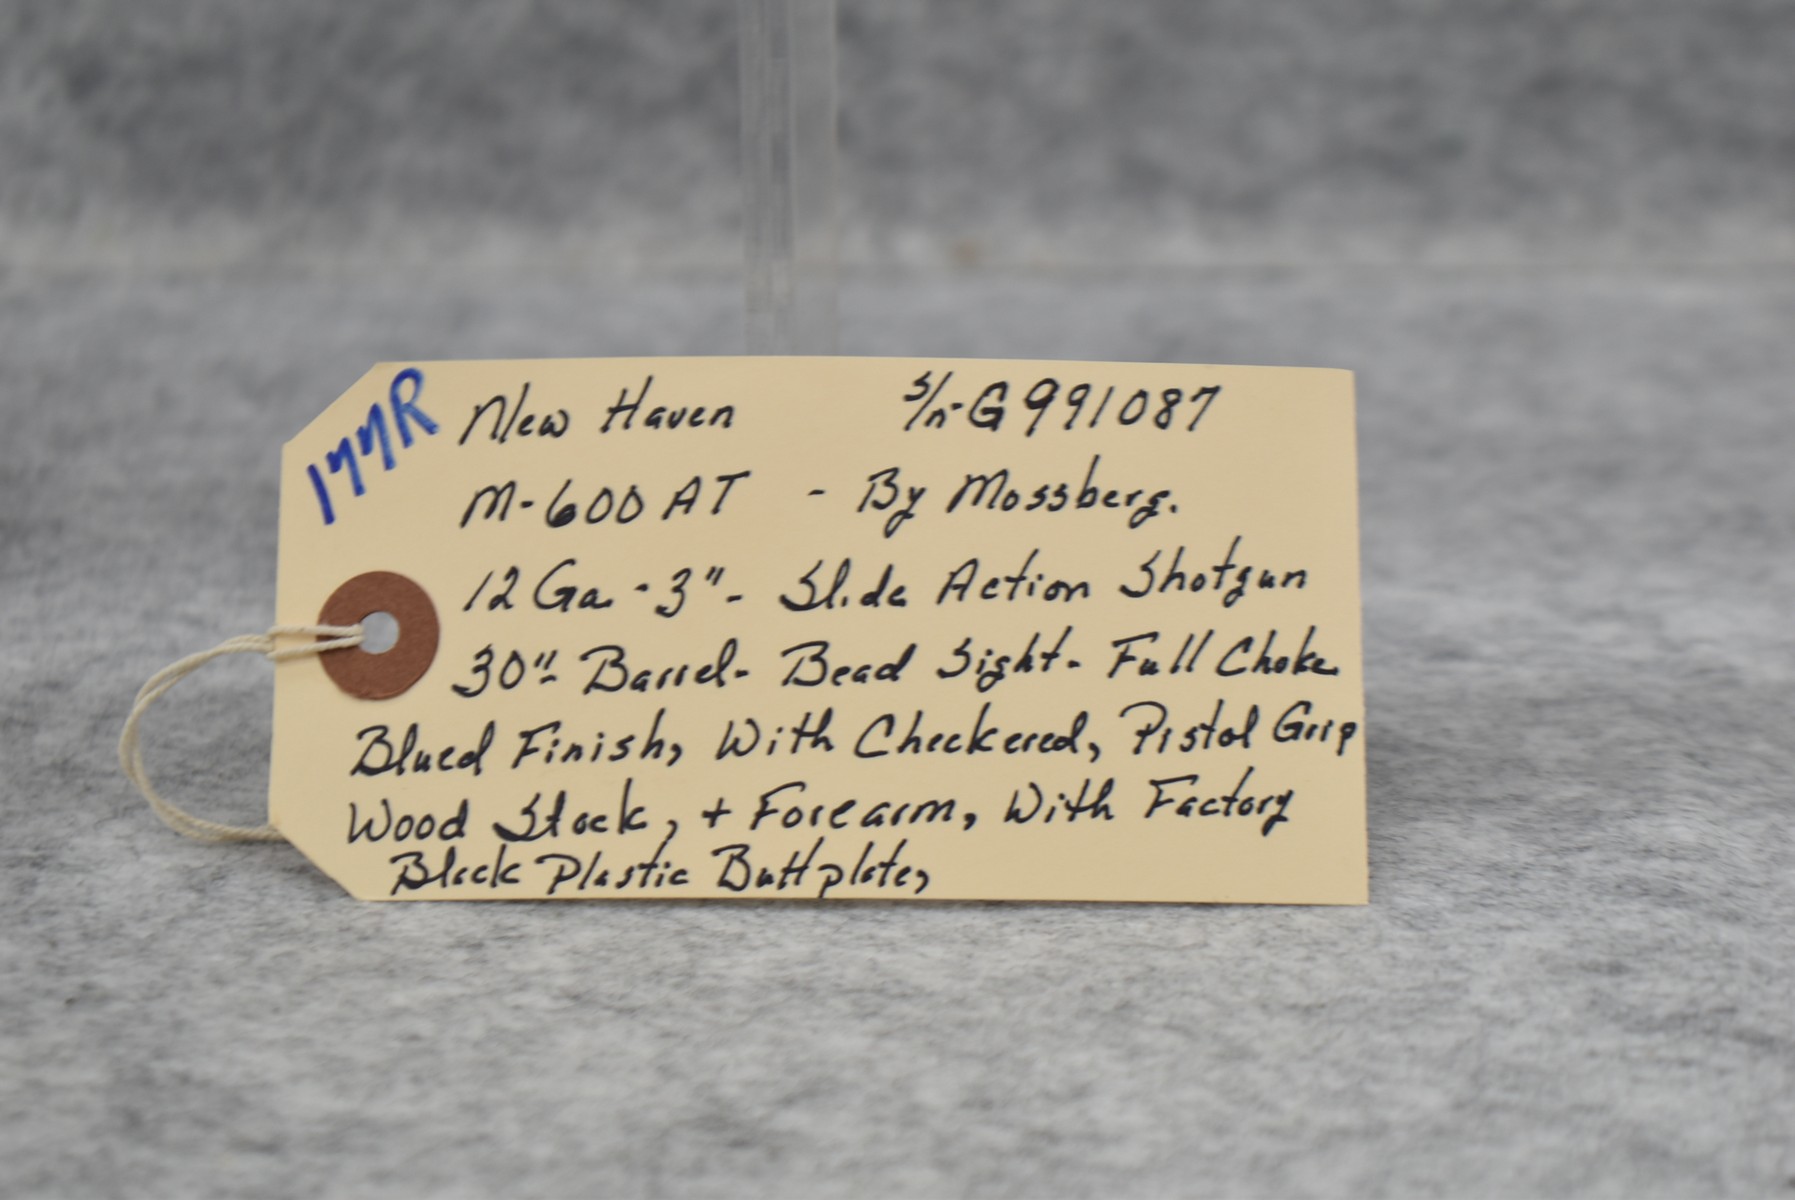 177R
New Haven S/n-G991087
M-600AT - By Mossberg.
12 Ga. - 3" - Slide Action Shotgun
30" - Barrel - Bead Sight - Full Choke
Blued Finish, With Checkered, Pistol Grip
Wood Stock, + Forearm, With Factory
Black Plastic Buttplate,